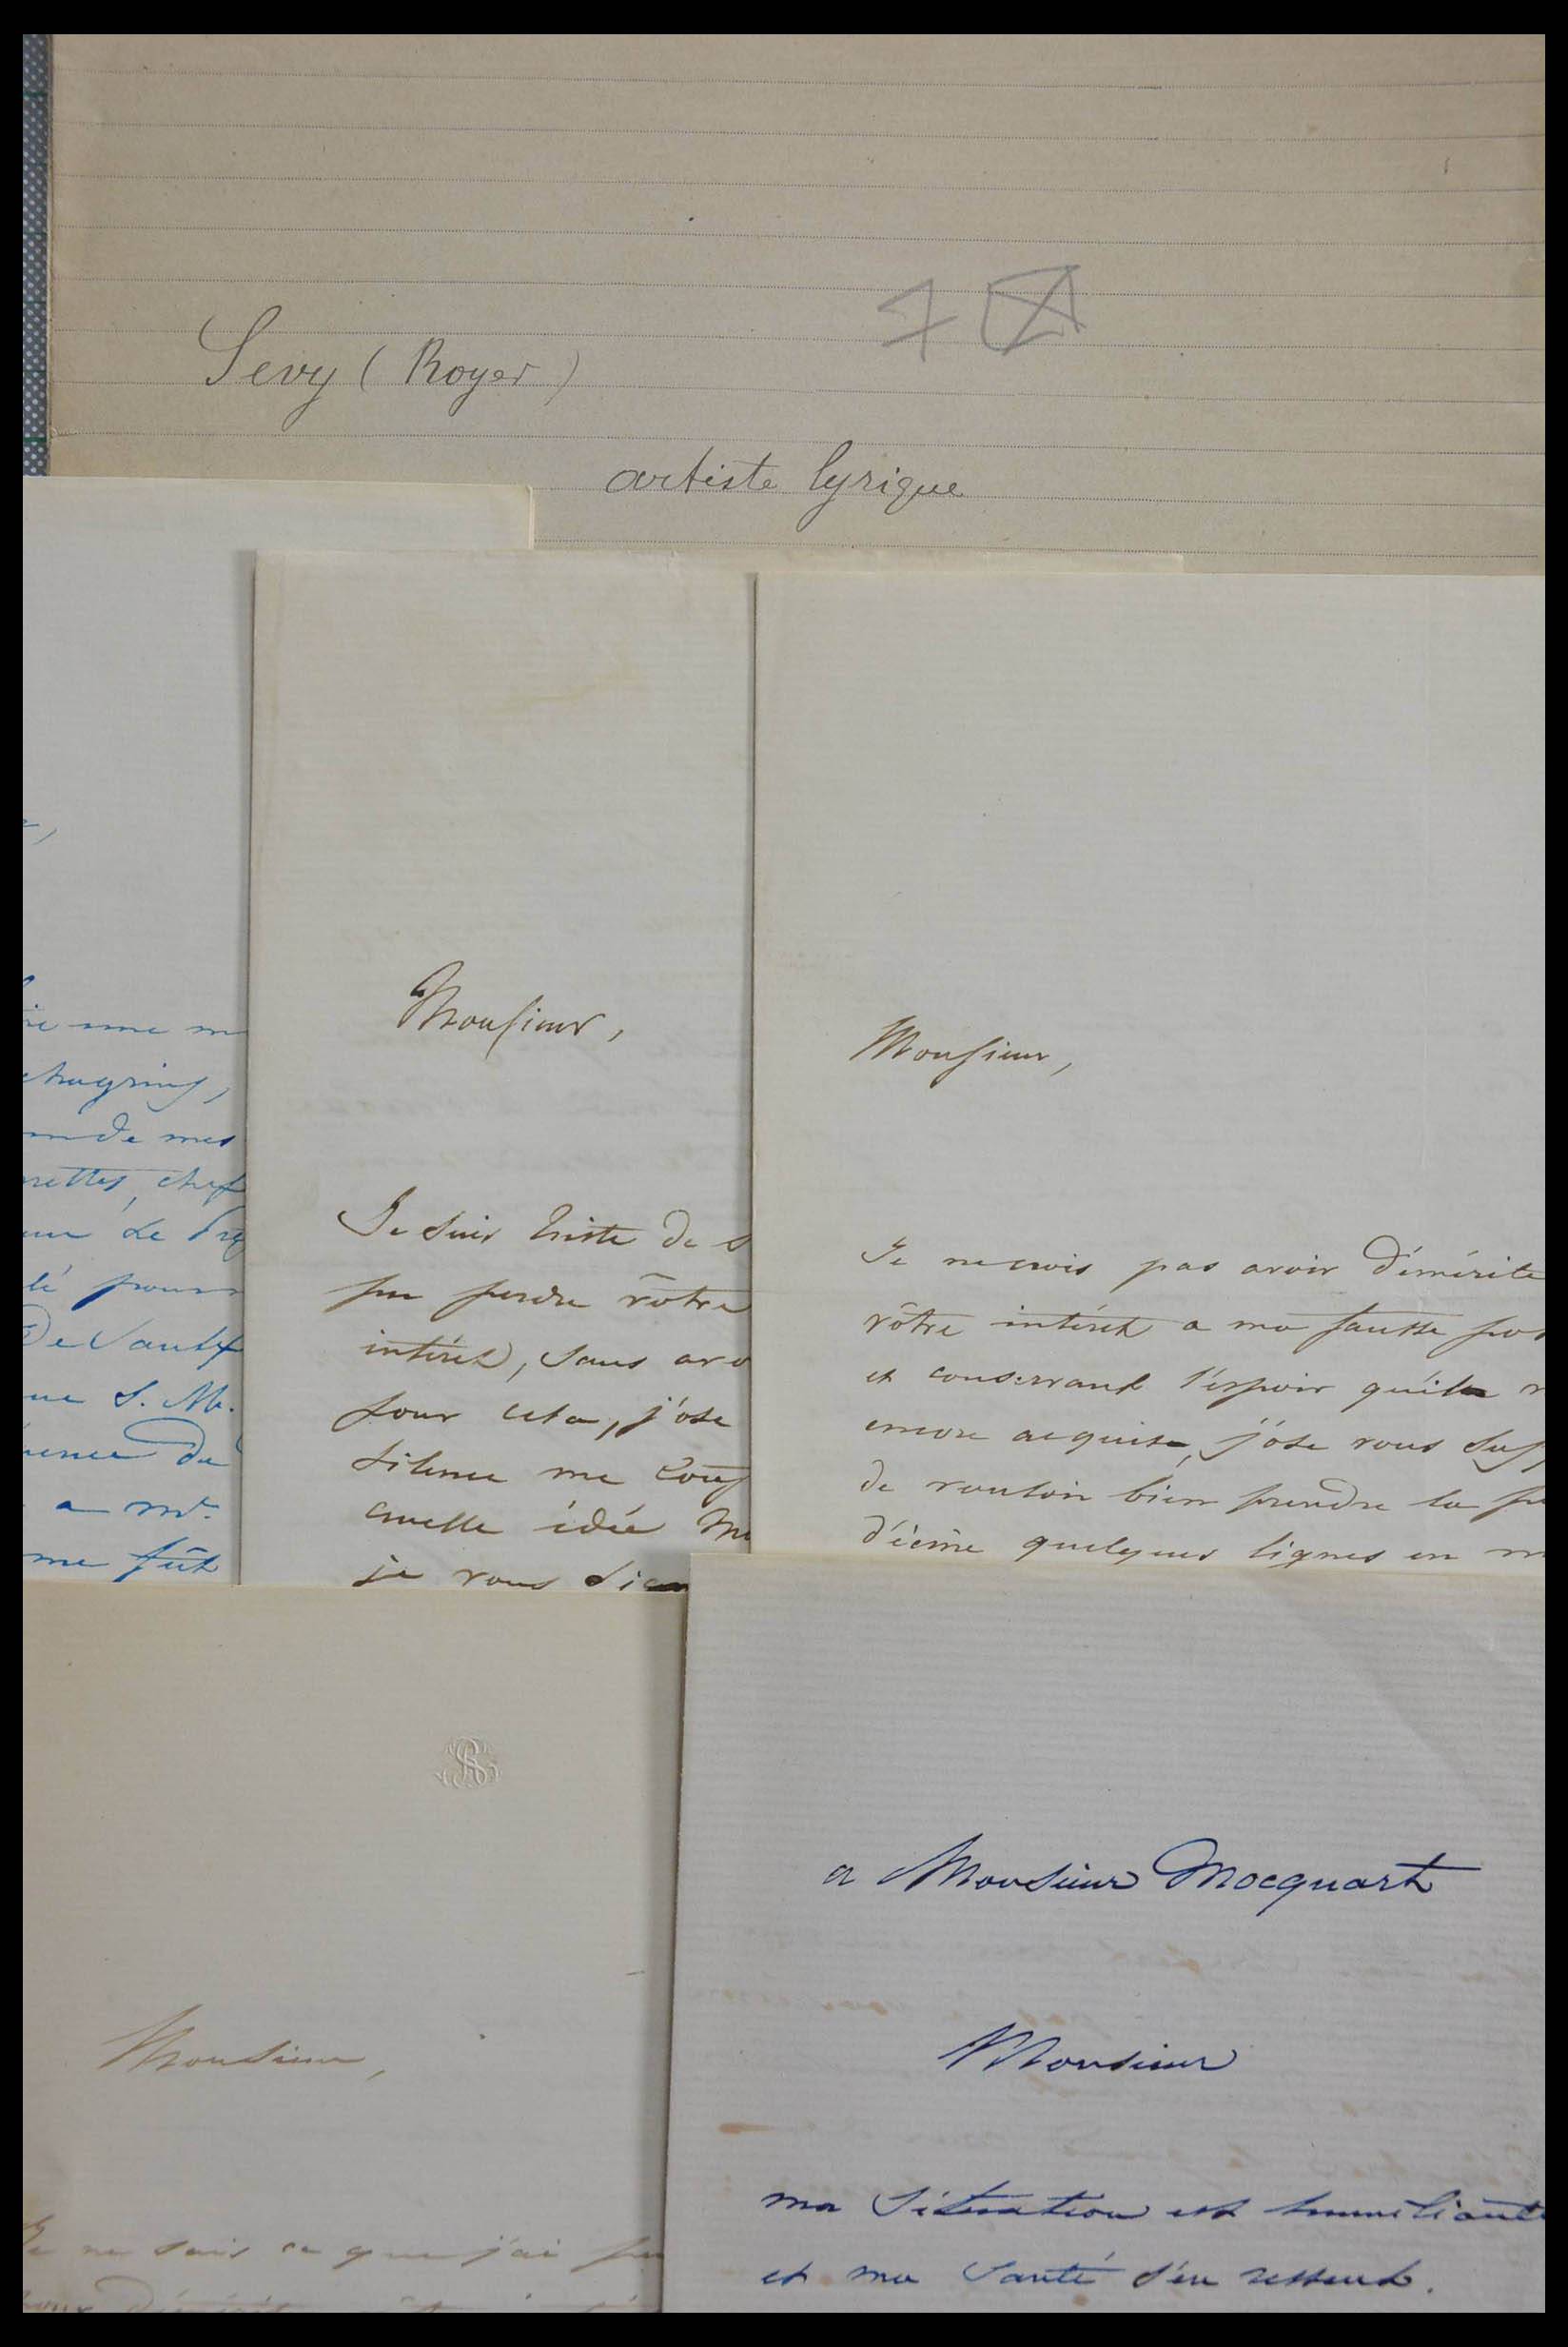 Sevy (Royer)
artiste lyrique
une m
chagrins,
de mes
chef
De
S. M.
du
a Mr.
me fût
Monsieur,
Je suis triste de s
pu perdre vôtre
intérêt, sans avo
pour cela, j'ose
silence me
cruelle idée
je vous
Monsieur,
Je ne crois pas avoir démérité
vôtre intérêt a ma fausse pos
et conservant l'espoir qu'il
encore acquise, j'ose vous sup
de vouloir bien prendre la pe
d'écrire quelques lignes en m
RS
Monsieur,
Je ne sais ce que j'ai pu
a Monsieur Mocquart
Monsieur
ma situation est humiliante
et ma santé s'en ressent.